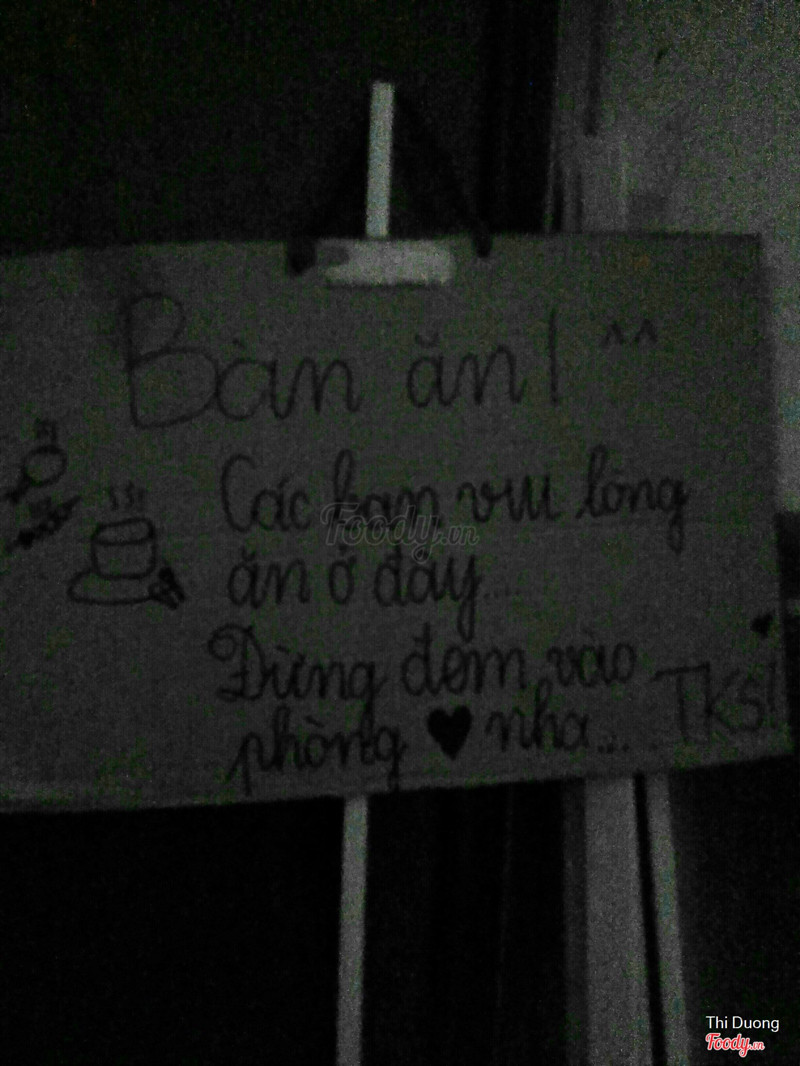 Bàn ăn! ^^
Các bạn vui lòng
ăn ở đây...
Đừng đem vào
phòng ♥ nha... TKS!
Foody.vn
Thi Duong
Foody.vn